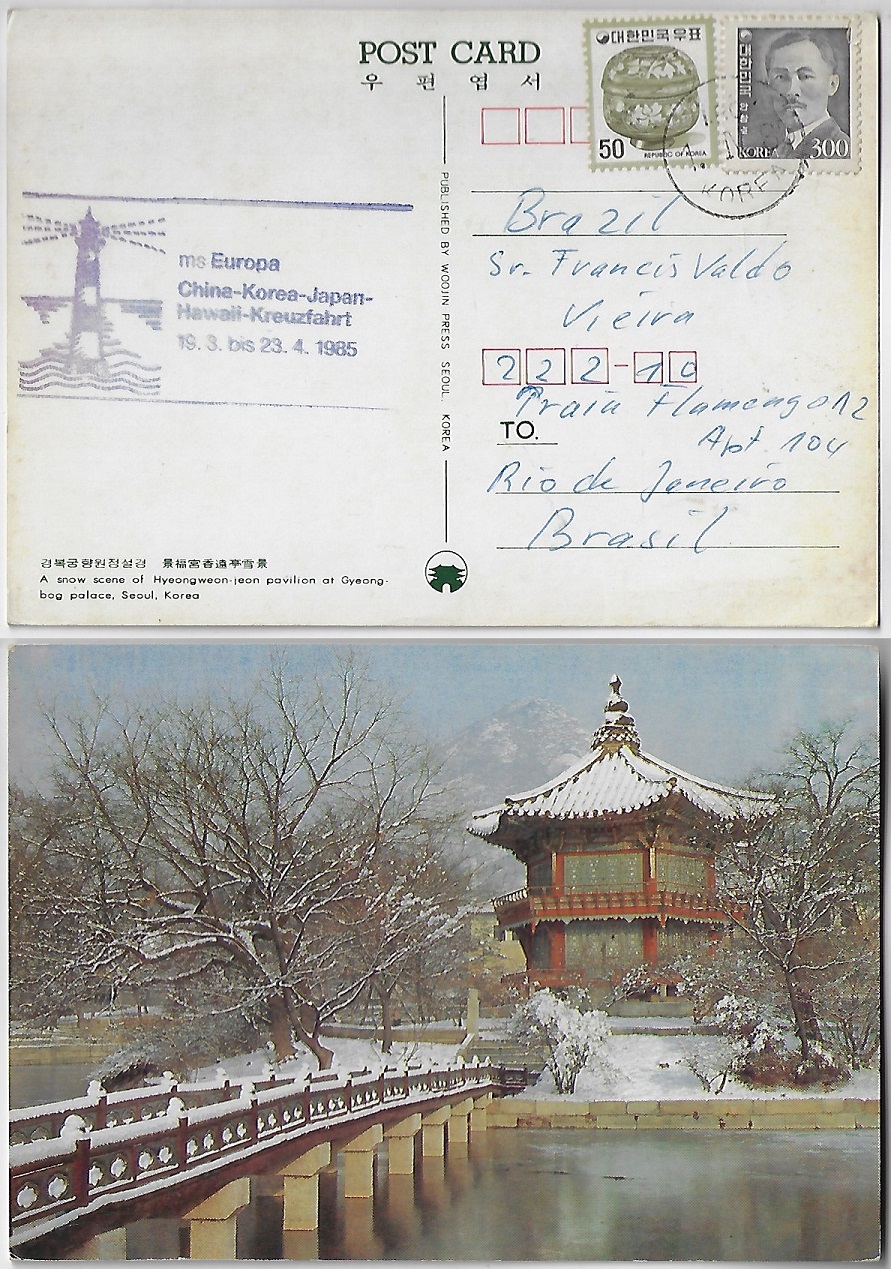 POST CARD
우 편 엽 서
대한민국우표
50
REPUBLIC OF KOREA
대한민국
안창호
KOREA
300
KOREA
PUBLISHED BY WOOJIN PRESS SEOUL. KOREA
ms Europa
China-Korea-Japan-
Hawaii-Kreuzfahrt
19. 3. bis 23. 4. 1985
Brazil
Sr. Francis Valdo
Vieira
222-10
Praia Flamengo 12
Apt. 104
TO.
Rio de Janeiro
Brasil
경복궁향원정설경 景福宮香遠亭雪景
A snow scene of Hyeongweon-jeon pavilion at Gyeong-
bog palace, Seoul, Korea